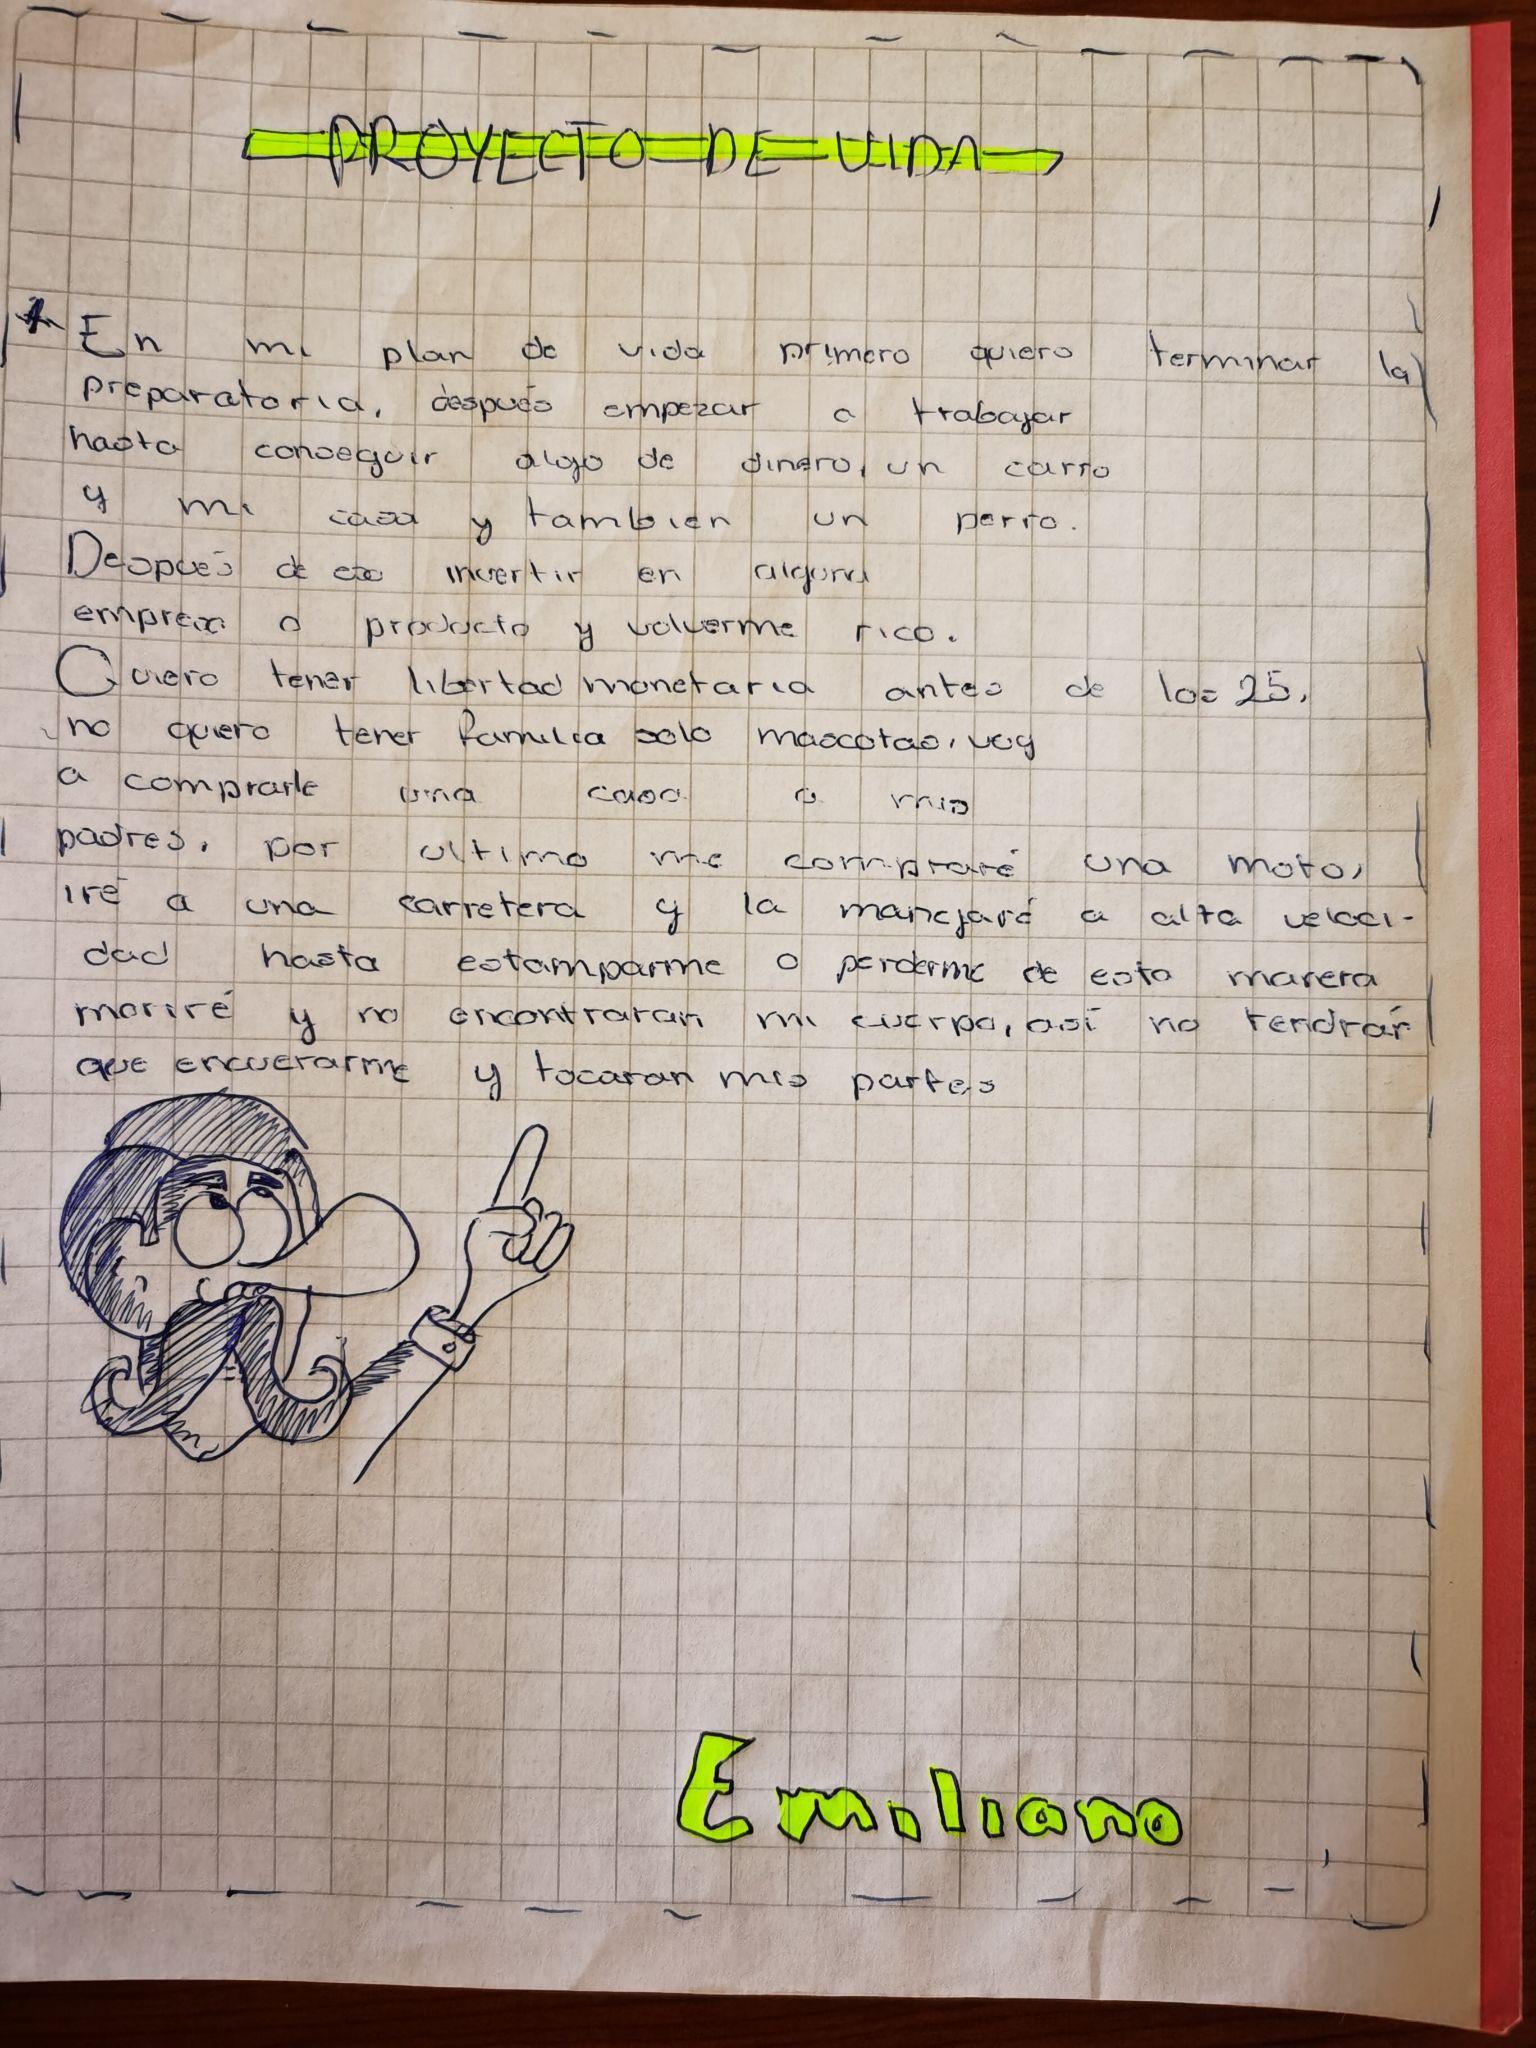 PROYECTO DE VIDA
En mi plan de vida primero quiero terminar la
preparatoria, después empezar a trabajar
hasta conseguir algo de dinero, un carro
y mi casa y tambien un perro.
Después de eso invertir en alguna
empresa o producto y volverme rico.
Quiero tener libertad monetaria antes de los 25,
no quiero tener familia solo mascotas, voy
a comprarle una casa a mis
padres, por ultimo me compraré una moto,
iré a una carretera y la manejaré a alta veloci-
dad hasta estamparme o perderme de esta manera
moriré y no encontraran mi cuerpo, así no tendrán
que encuerarme y tocaran mis partes
Emiliano